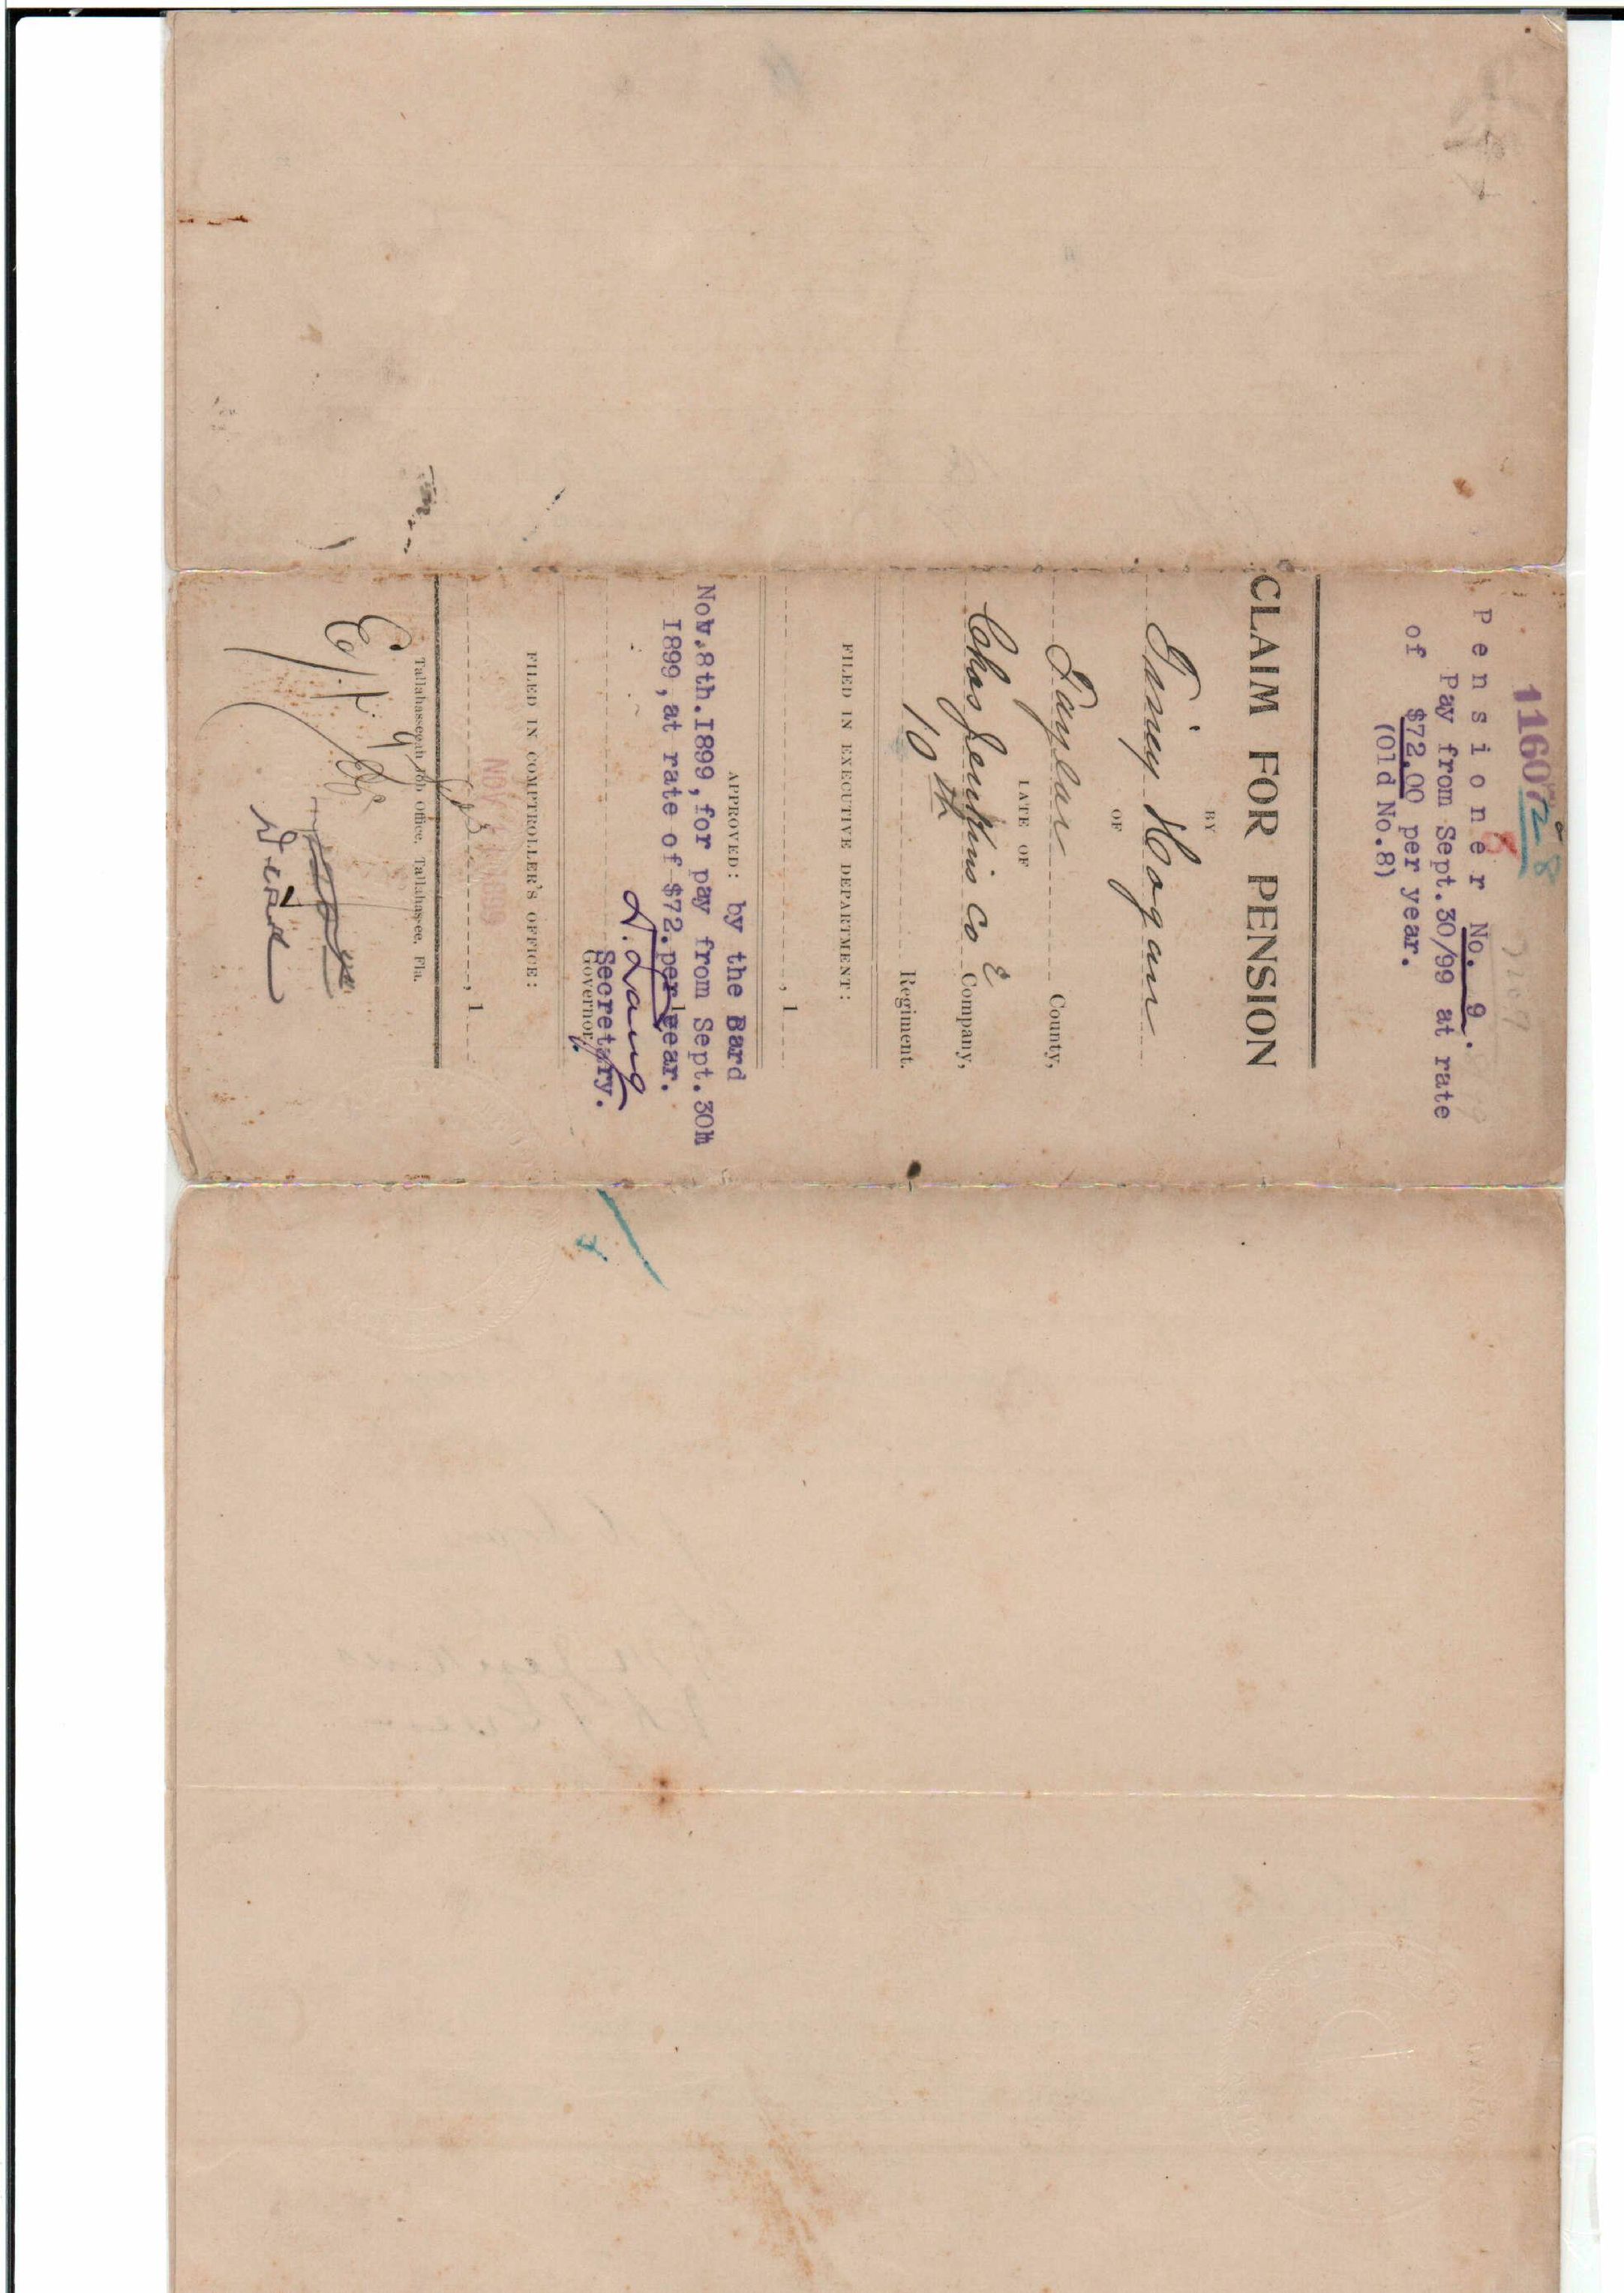 11607
28
Pensioner No. 9.
Pay from Sept.30/99 at rate
of $72.00 per year.
(Old No.8)
CLAIM FOR PENSION
BY
Hogan
OF
Taylor County,
LATE OF
Chas Jenkins Co E Company,
10th Regiment.
FILED IN EXECUTIVE DEPARTMENT:
, 1
APPROVED: by the Bard
Nov.8th.1899, for pay from Sept.30th
1899, at rate of $72.per year.
D. Lang
Secretary.
Governor.
FILED IN COMPTROLLER'S OFFICE:
, 1
Tallahasseean Job Office, Tallahassee, Fla.
Dead